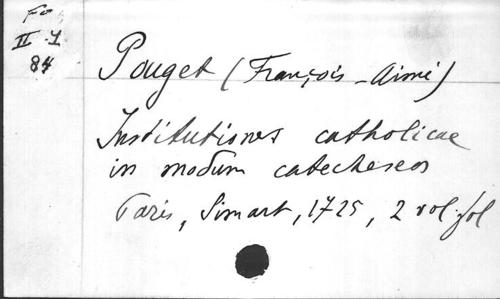 Fo
II-1
84
Pouget (François-Aimé)
Institutiones catholicae
in modum catecheseos
Paris, Simart, 1725, 2 vol. fol